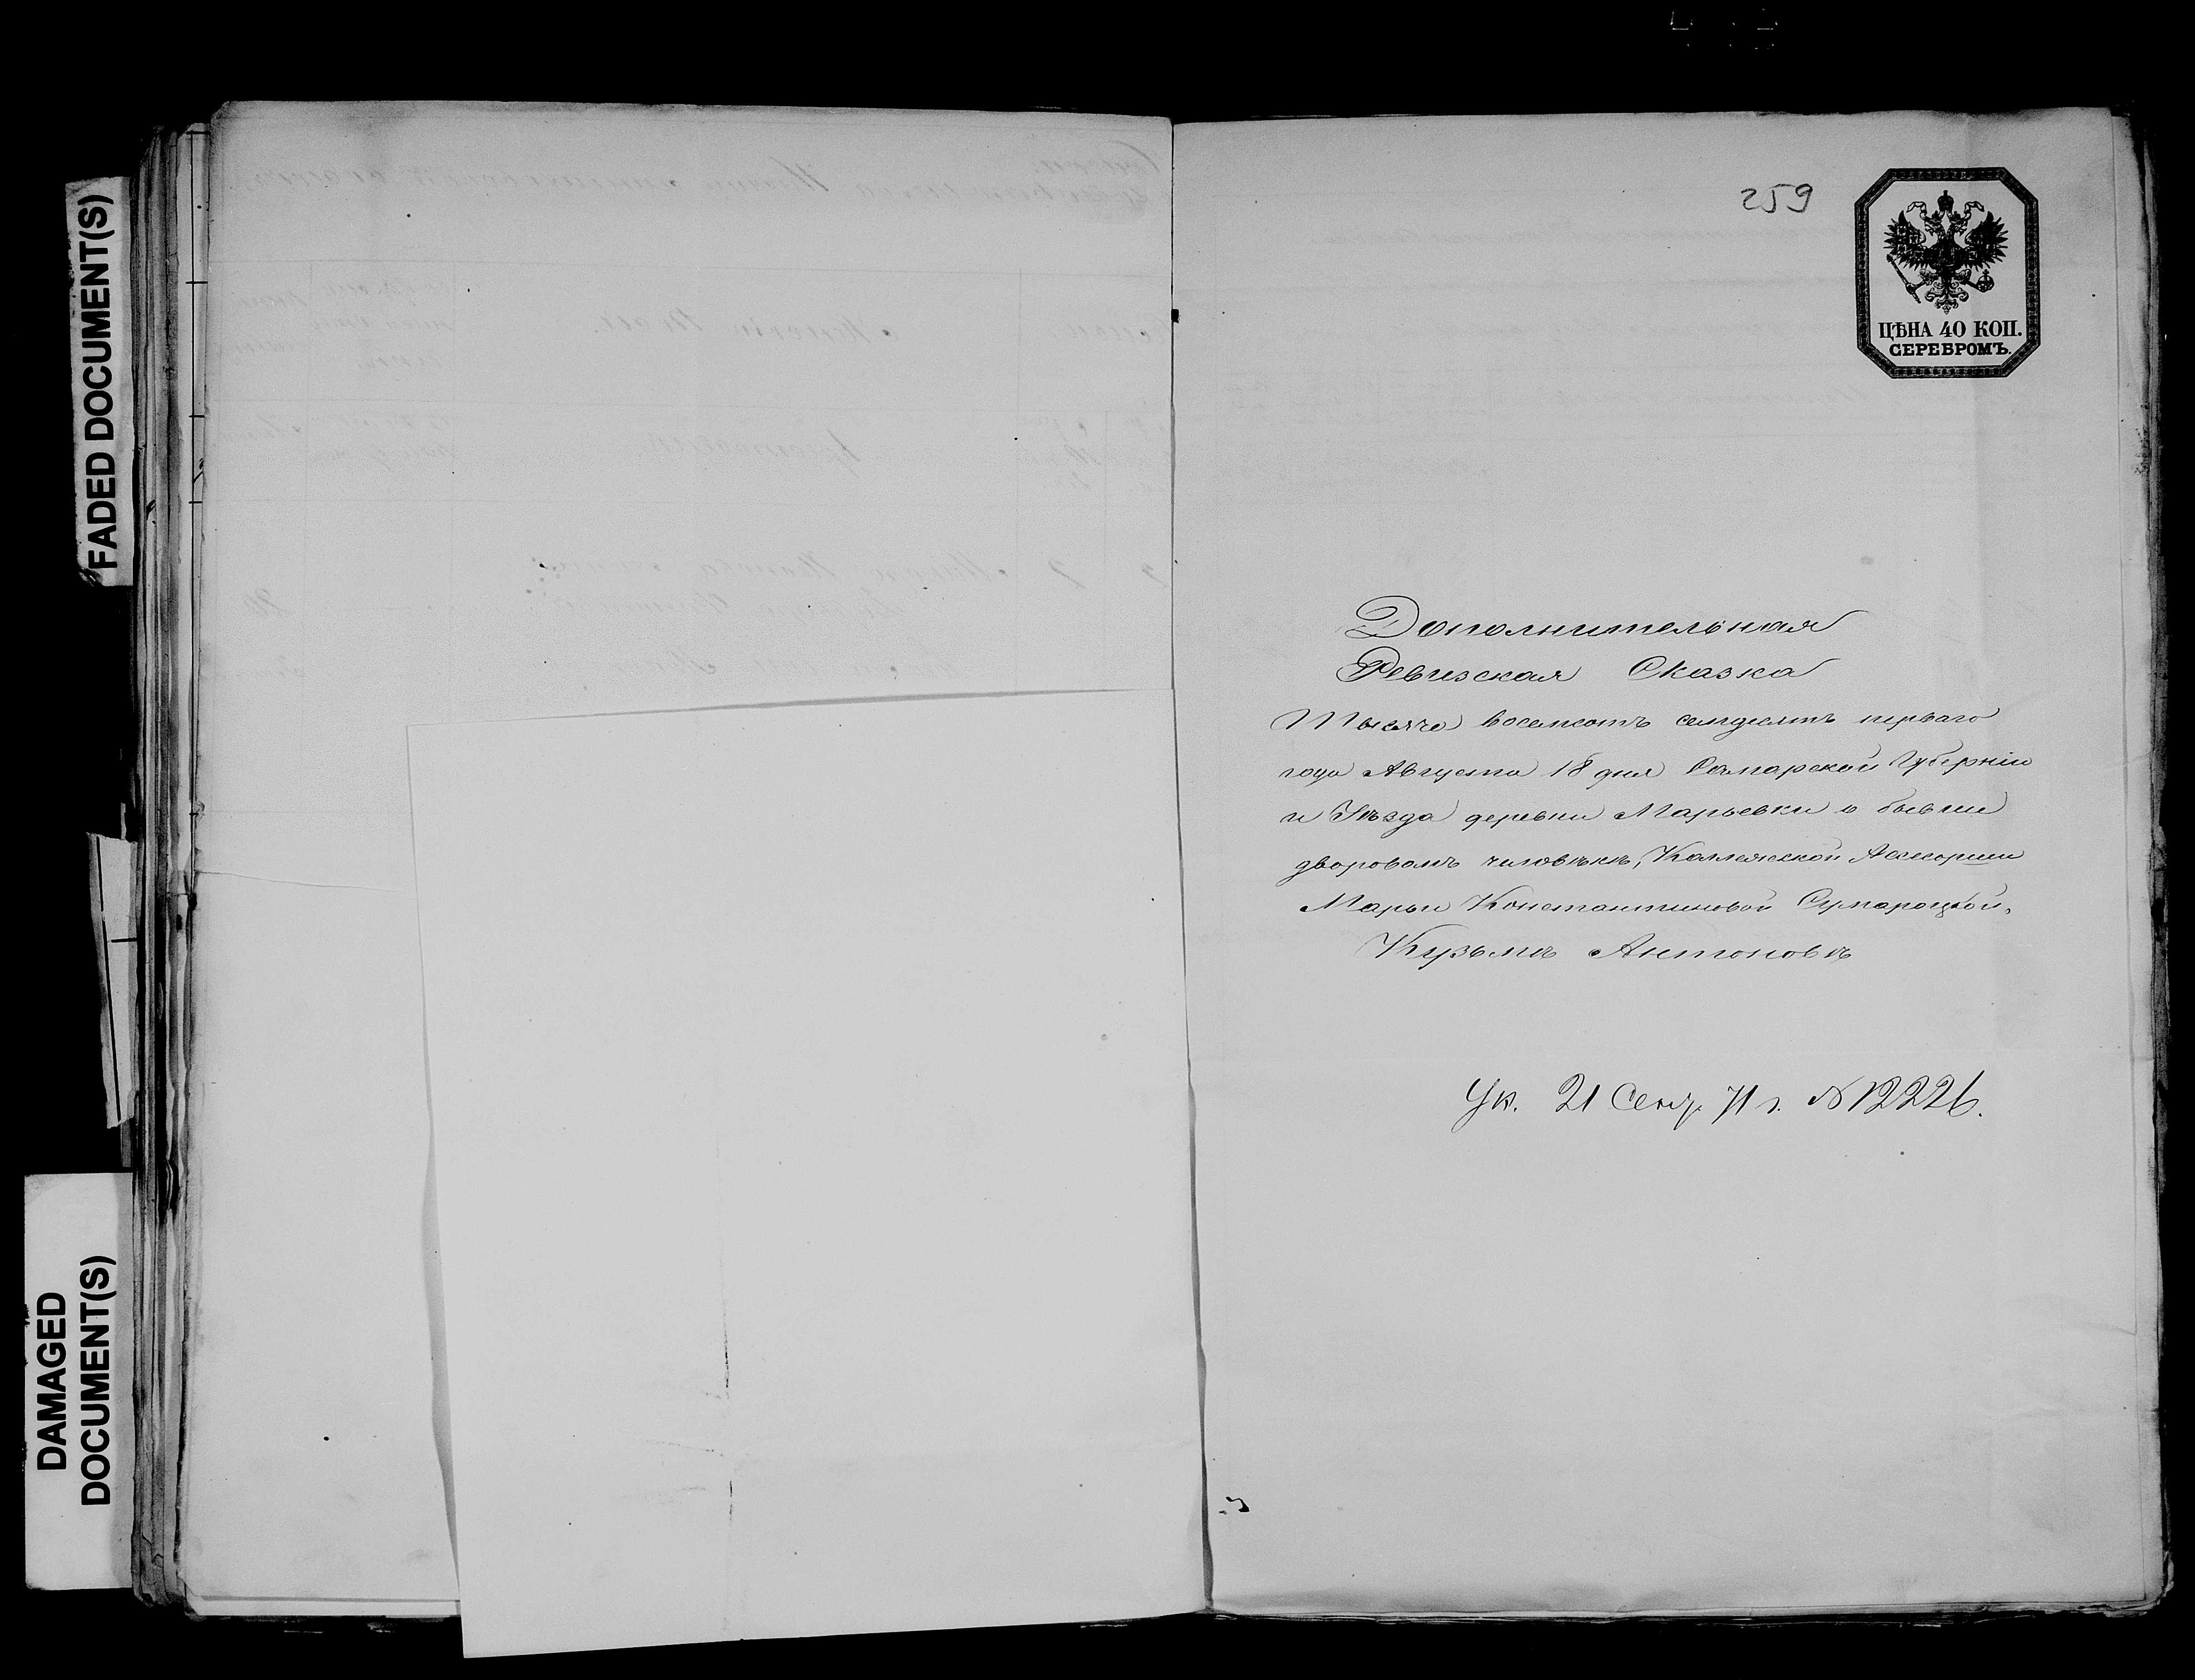 FADED DOCUMENT(S)
DAMAGED
DOCUMENT(S)
259
ЦѢНА 40 КОП.
СЕРЕБРОМЪ.
Дополнительная
Ревизская Сказка
Тысяча восемсотъ семдесятъ перваго
года Августа 18 дня Самарской Губерніи
и Уѣзда деревни Марьевки о бывшем
дворовомъ человѣкѣ, Коллежской Ассесорши
Марьи Константиновой Сумароцкой,
Кузьмѣ Антоновѣ
Ук. 21 Сент. 71 г. № 12226.